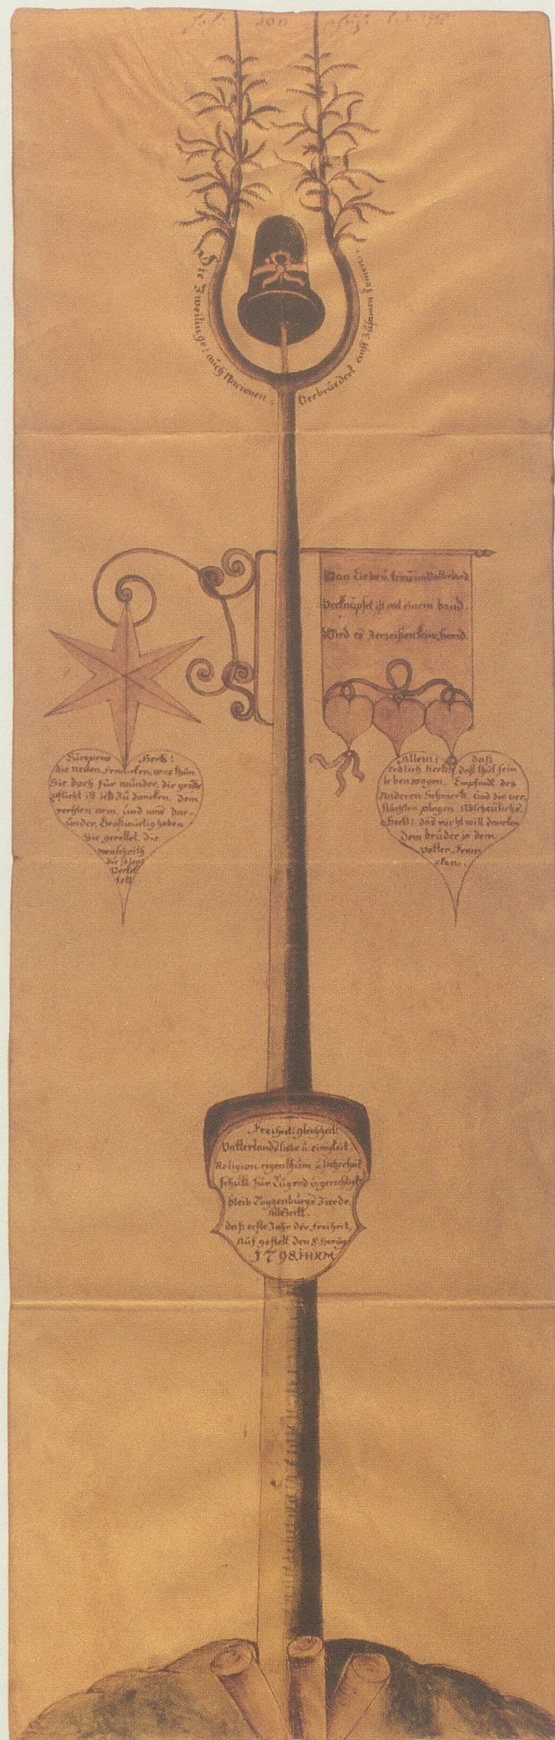 Die Zwillinge! auch Nacionen. Verbrüdert einst Zusamen komen.
Wan Liebe ü. treü im Vatterland
Verknüpfet ist mit einem band.
Wird es Zerreisen keine hand.
Bürgers Herk!
die neüen Francken, was thün
Sie doch für wünder, die größte
pflicht ist jetz Zü dancken, dem
rechten arm, und uns dar-
under, Großmüetig haben
Sie gerettet, die
menschheith
die so lang
Allein; daß
redlich Herk! daß thüt sein
lebenwagen. Empfindt des
Anderen Schmertz, Und die ver
plagen. Abscheüliches
Herk! das nicht will dancken
Dem brüder ja dem
Vatter Fran
cken.
Freiheit: gleichheit:
Vatterlands liebe ü. einigkeit.
Religion eigenthüm ü. sicherheit
schütz für Tügend ü. gerechtigkeit
bleib Toggenbürgs Zierde
Allzeitt.
daß erste Jahr der freiheit,
Aüf gestelt den 8. Horüg
1798. IHRM